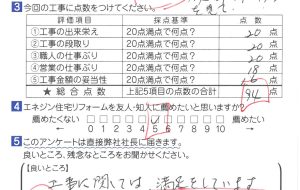 3 今回の工事に点数をつけてください。
評価項目 採点基準 点数
①工事の出来栄え 20点満点で何点? 20 点
②工事の段取り 20点満点で何点? 20 点
③職人の仕事ぶり 20点満点で何点? 20 点
④営業の仕事ぶり 20点満点で何点? 18 点
⑤工事金額の妥当性 20点満点で何点? 16 点
★総合点数 上記5項目の点数の合計 94 点
4 エネジン住宅リフォームを友人・知人に薦めたいと思いますか?
薦めたくない 薦めたい
0 1 2 3 4 5 6 7 8 9 10
5 このアンケートは直接弊社社長に届きます。
良いところ、残念なところをお聞かせください。
【良いところ】
工事に関しては、満足をしています